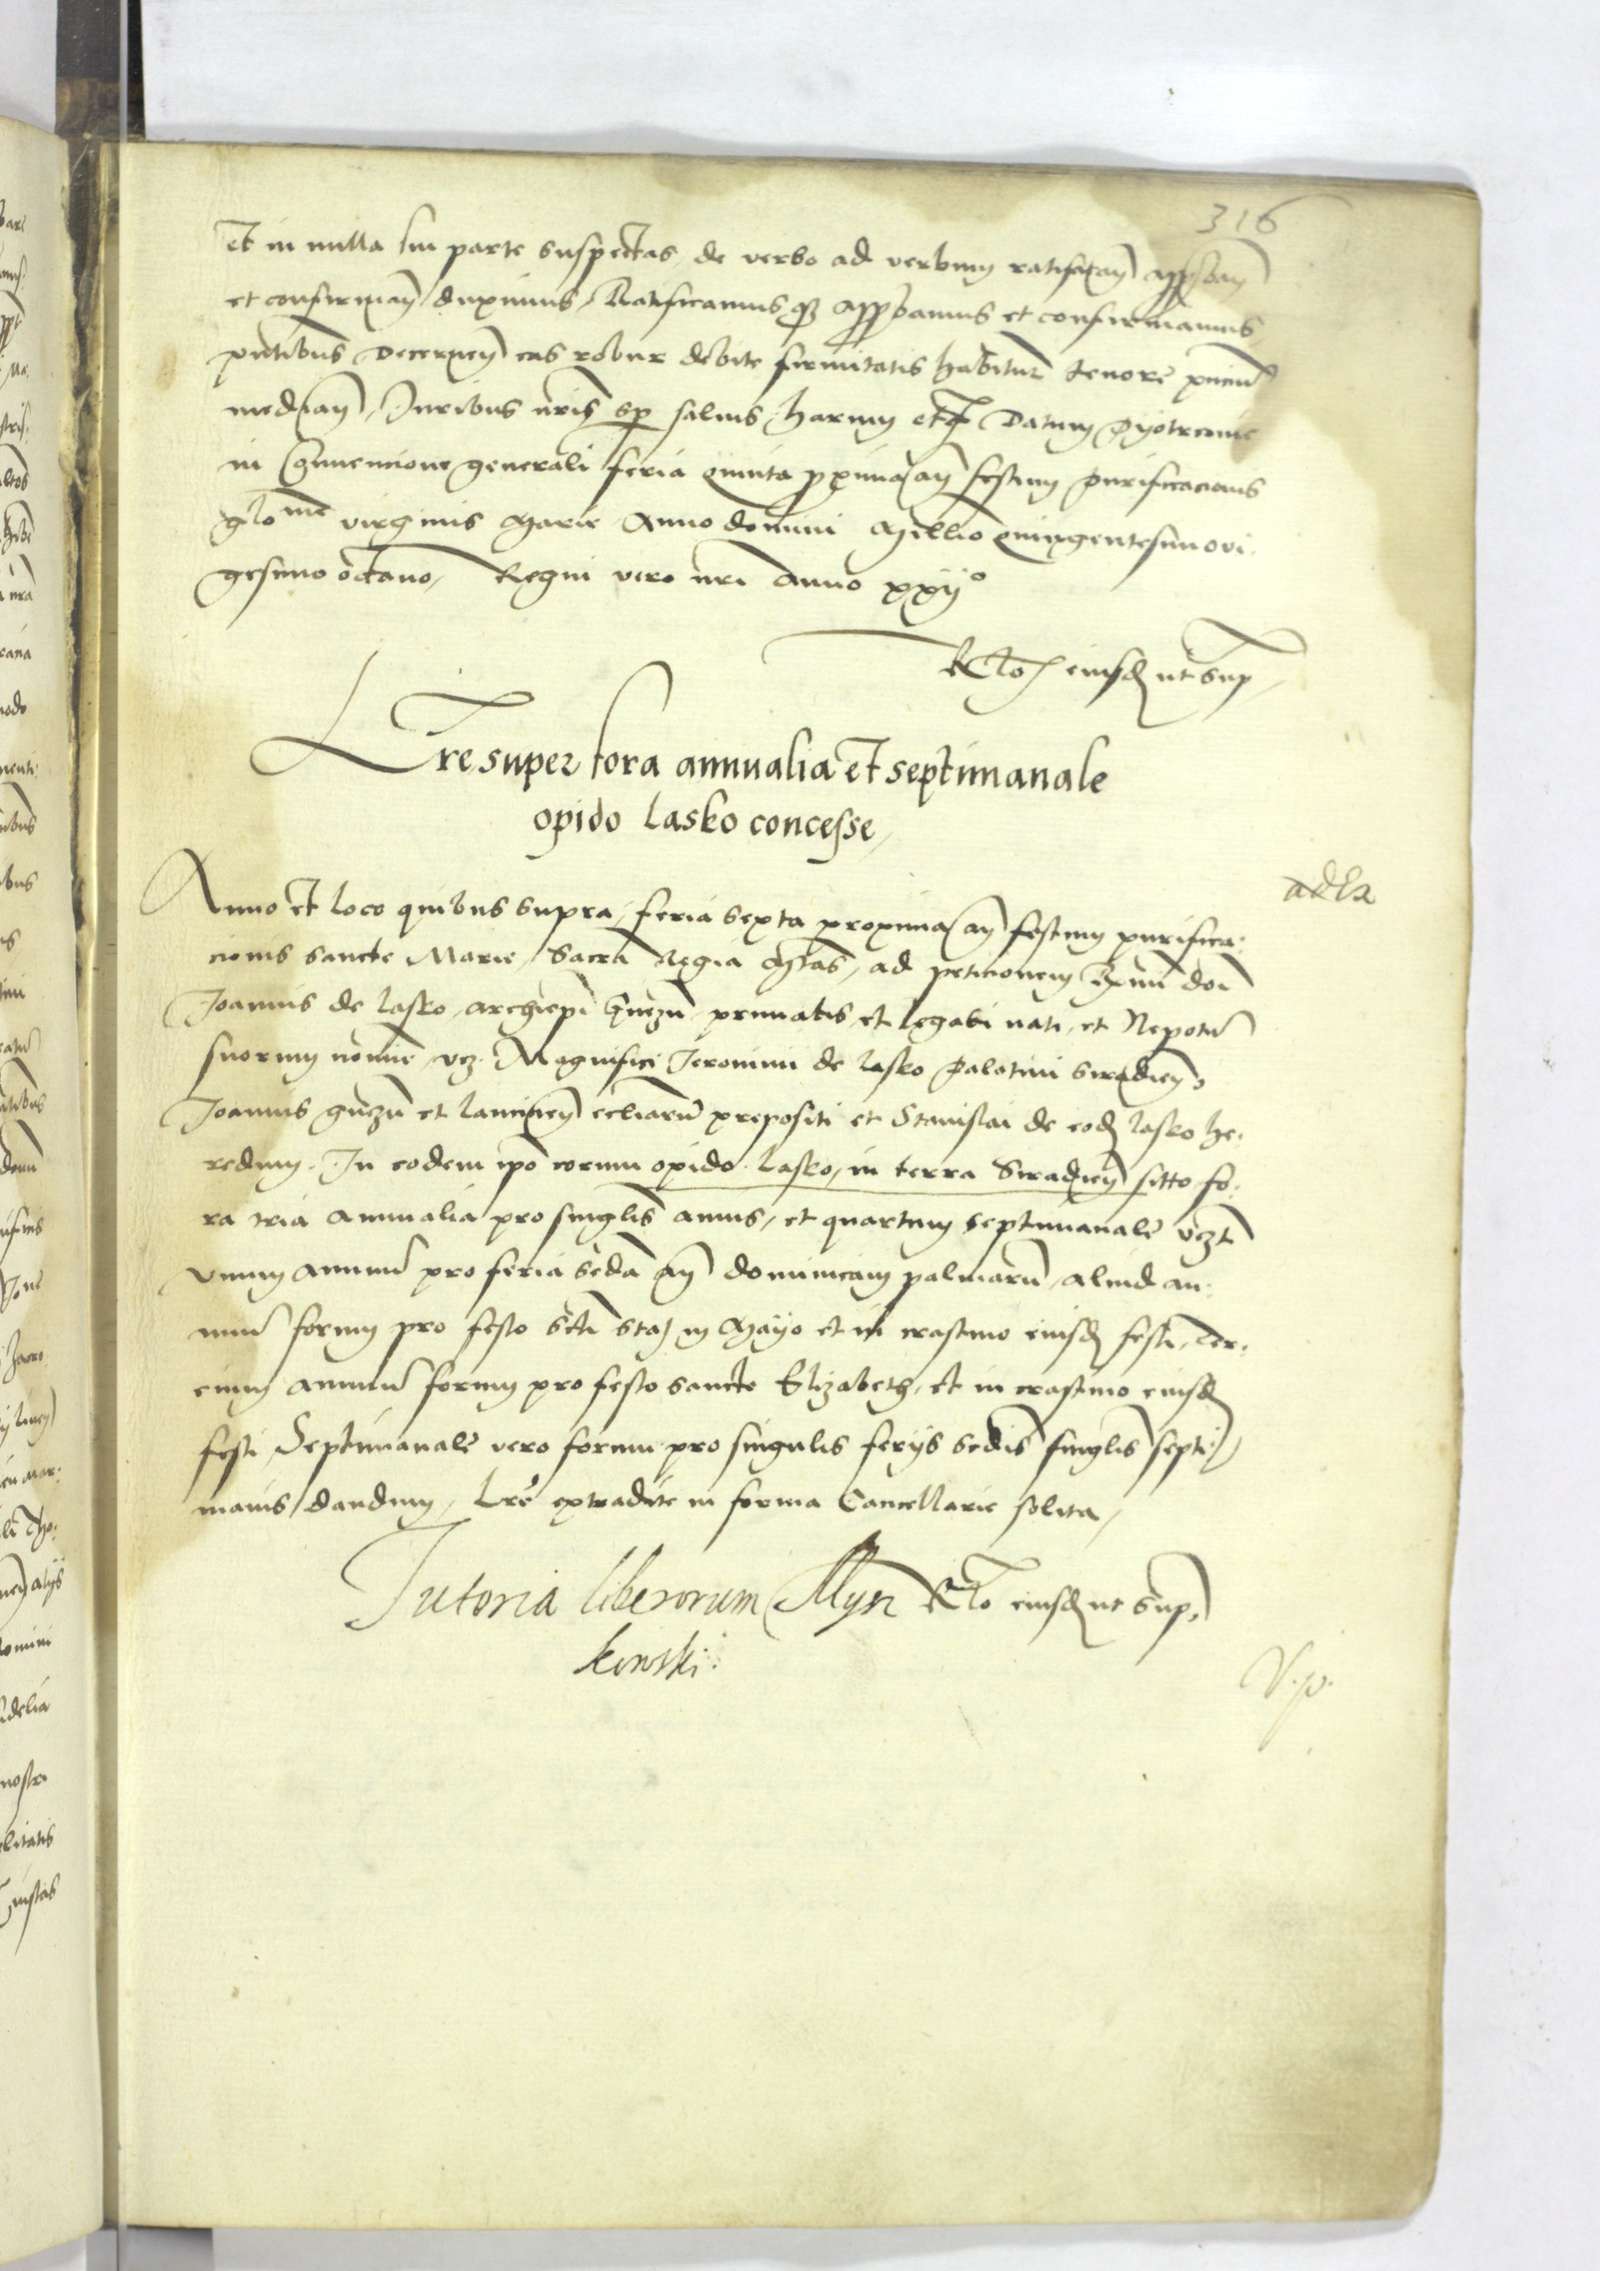 316
et in nulla sui parte suspectas, de verbo ad verbum ratificañ approbañ
et confirmañ duximus, Ratificamusqȝ approbamus et confirmamus
pñtibus Decerneñ eas robur debite firmitatis habituras tenore pñcium
median̄, Juribus nr̄is sp salvis, harum etc Datum Pyotrcovie
in Convencione generali feria quinta proxima añ festum purificacionis
glome virginis Marie Anno domini Millio quingentesimo vi
gesimo octavo, Regni vero nr̄i Anno xxijº
Rlo eiusd ut sup
Lre super fora annualia et septimanale
opido Lasko concesse
adla
Anno et loco quibus supra, feria sexta proxima añ festum purifica:
cionis sancte Marie, Sacra Regia Mtas, ad peticionem Rmi doi
Joannis de Lasko, archiepi Gnezn̄, primatis et legati nati, et Nepotū
suorum noīe, vcȝ. Magnifici Jeronimi de Lasko Palatini Siradieñ,
Joannis gnezn̄ et lancicieñ ecliarū prepositi et Stanislai de eod Lasko he:
redum. In eodem ipo eorum opido. Lasko, in terra Siradieñ sitto fo:
ra tria annualia pro singlis annis, et quartum septimanale vczt
unum annuū pro feria secda añ dominicam palmarū, aliud an:
nuū forum pro festo scti Sta in Mayo et in crastino eiusd festi, Ter:
cium annuū forum pro festo sancte Elizabeth, et in crastino eiusd
festi Septimanale vero forum pro singulis ferijs secdis singlis septi
manis dandum, Lre extradite in forma Cancellarie solita,
Rlo eiusd ut sup,
Tutoria liberorum Myn
kowski.
V. p.